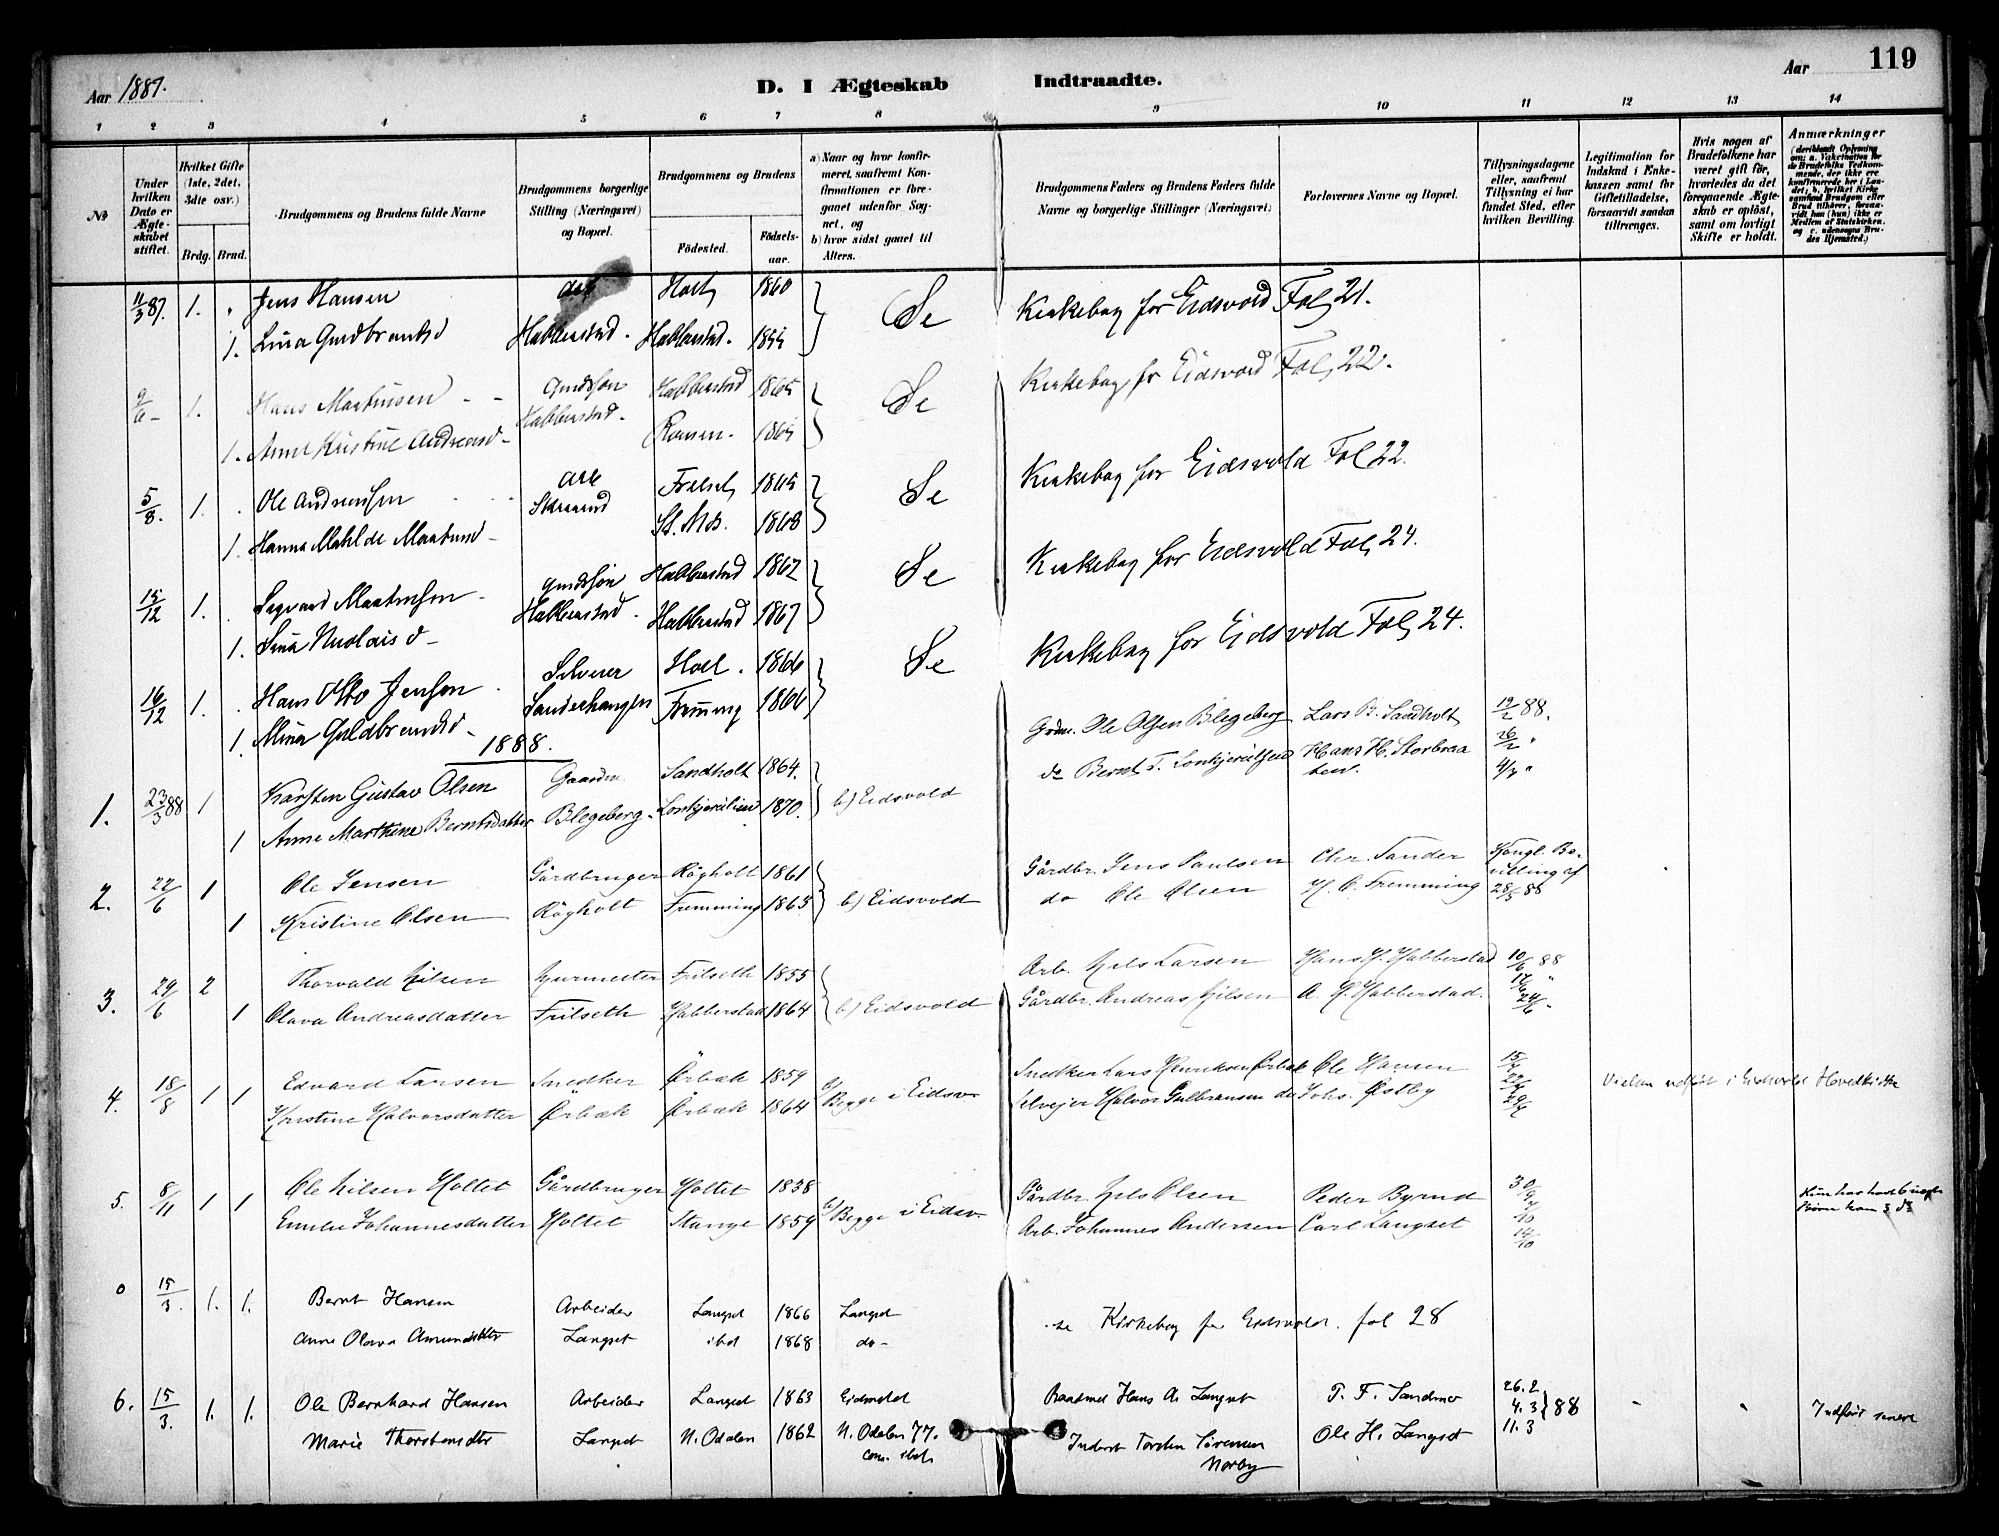 Aar 1887.
D. I Ægteskab Indtraadte.
Aar
119
1 2 3 4 5 6 7 8 9 10 11 12 13 14
№
Under hvilken Dato er Ægteskabet stiftet.
Hvilket Gifte (1ste, 2det, 3die osv.)
Brdg. Brud.
Brudgommens og Brudens fulde Navne
Brudgommens borgerlige Stilling (Næringsvei) og Bopæl.
Brudgommens og Brudens
Fødested.
Fødselsaar.
a) Naar og hvor konfirmeret, saafremt Konfirmationen er foregaaet udenfor Sognet, og
b) hvor sidst gaaet til Alters.
Brudgommens Faders og Brudens Faders fulde Navne og borgerlige Stillinger (Næringsvei)
Forlovernes Navne og Bopæl.
Tillysningsdagene eller, saafremt Tillysning ei har fundet Sted, efter hvilken Bevilling.
Legitimation for Indskud i Enkekassen samt for Giftetilladelse, forsaavidt saadan tiltrænges.
Hvis nogen af Brudefolkene har været gift før, hvorledes da det foregaaende Ægteskab er opløst, samt om lovligt Skifte er holdt.
Anmærkninger
11/3 87. 1. Jens Hansen Holt 1860 Se Kirkebog for Eidsvold Fol. 21.
1. Lina Gudbrandsd Habberstad. Habberstad.
9/6 - 1. Hans Martinsen - - Gmdsøn Habberstad 1865 Se Kirkebog for Eidsvold Fol. 22.
1. Anne Kristine Andreasd - Habberstad -
5/8. 1. Ole Andreassen Arb Frilset 1865 Se Kirkebog for Eidsvold Fol 22.
1. Hanna Mathilde Martinsd - 1868
15/12 1. Sigvard Martinsen - Gmdsøn Habberstad 1862 Se Kirkebog for Eidsvold Fol. 24.
1. Lina Nicolaisd - Habberstad. Habberstad 1867
16/12 1. Hans Otto Jensen Selveier Holt. 1866 Se Kirkebog for Eidsvold Fol. 24.
1. Mina Guldbrandsd. Sanderhangen Fremming 1866
1888.
1. 23/3 88 1 Karsten Gustav Olsen Sandholt 1864. b) Eidsvold Grdm. Ole Olsen Blegeberg Lars B. Sandholt 19/2 88.
1 Anne Marthine Berntsdatter Blegeberg. 1870. do Bernt T. Hans H. Storbraaten. 26/2 "
4/3 "
2. 22/6 1 Ole Jensen Gårdbruger Rögholt 1861 b) Eidsvold Gårdbr. Jens Paulsen Chr. Sander Kongl. Bevilling af 28/5 88
1 Kristine Olsen Rögholt Fremming 1863 do Ole Olsen H. O. Fremming
3. 29/6 2 Thorvald Nilsen Hjurmester Frilseth 1855 b) Eidsvold Arb. Nils Larsen Hans H. Habberstad 10/6 88
1 Olava Andreasdatter Frilseth Habberstad 1864 Gårdbr. Andreas Nilsen A. H. Habberstad. 17/6 "
24/6 "
4. 18/8 1 1 Edvard Larsen Snedker Ørbæk 1859 b) Begge i Eidsv. Snedker Lars Henriksen Ørbæk Ole Hansen 15/7 Vielsen udført i Eidsvold Hovedkirke
Kristine Halvorsdatter Ørbæk Ørbæk 1864 Selvejer Halvor Gulbransen do Johs. Østby 22/7
29/7
5. 8/11 1 1 Ole Nilsen Holtet Gårdbruger Holtet 1838 b) Begge i Eidsv. Gårdbr. Nils Olsen Peder Byrud 30/9
Emilie Johannesdatter Holtet Stange 1859 Arb. Johannes Andersen Carl Langset 7/10
14/10
0 15/3. 1. 1. Bernt Hansen Arbeider Langset 1866 Langset se Kirkebog for Eidsvold. fol 28
Anne Olava Amundsdtr Langset ibid 1868 do -
6. 15/3. 1. 1. Ole Bernhard Hansen Arbeider Langset 1863 Eidsvold Hans A. Langset T. F. Sandmo 26.2 4.3 11.3 } 88 Indført senere
Marie Thorstensdtr Langset N. Odalen 1862 N. Odalen 77. com. ibid. Inderst Torsten Sørensen Norby Ole H. Langset